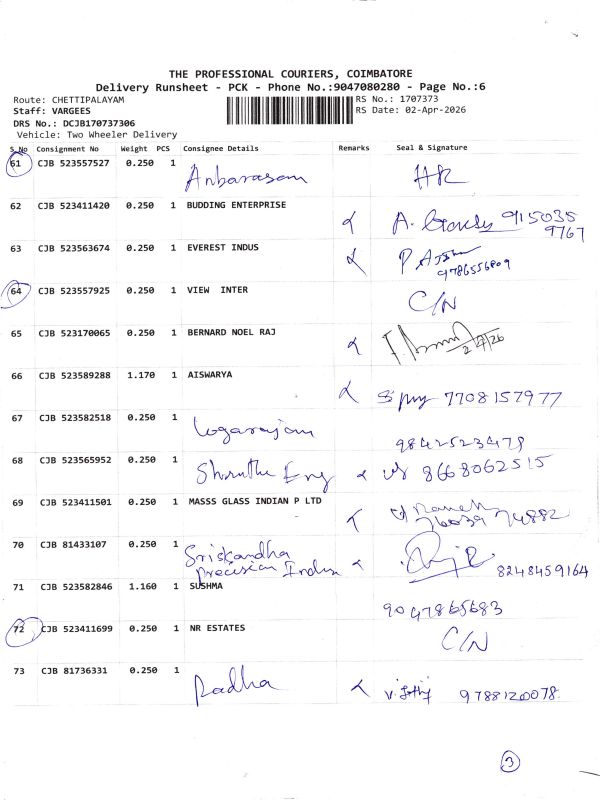 THE PROFESSIONAL COURIERS, COIMBATORE
Delivery Runsheet - PCK - Phone No.:9047080280 - Page No.:6
Route: CHETTIPALAYAM RS No.: 1707373
Staff: VARGEES RS Date: 02-Apr-2026
DRS No.: DCJB170737306
Vehicle: Two Wheeler Delivery
S.No Consignment No Weight PCS Consignee Details Remarks Seal & Signature
61 CJB 523557527 0.250 1 Anbarasan
62 CJB 523411420 0.250 1 BUDDING ENTERPRISE A. 915035
9767
63 CJB 523563674 0.250 1 EVEREST INDUS P
9786556809
64 CJB 523557925 0.250 1 VIEW INTER C/N
65 CJB 523170065 0.250 1 BERNARD NOEL RAJ
66 CJB 523589288 1.170 1 AISWARYA 7708157977
67 CJB 523582518 0.250 1 Logarajan 9842523479
68 CJB 523565952 0.250 1 Shruthi Eng 8668062515
69 CJB 523411501 0.250 1 MASSS GLASS INDIAN P LTD Ramesh
74882
70 CJB 81433107 0.250 1 Sriskandha
Precision Indus 8248459164
71 CJB 523582846 1.160 1 SUSHMA 9047865683
72 CJB 523411699 0.250 1 NR ESTATES C/N
73 CJB 81736331 0.250 1 Radha 9788120078
3